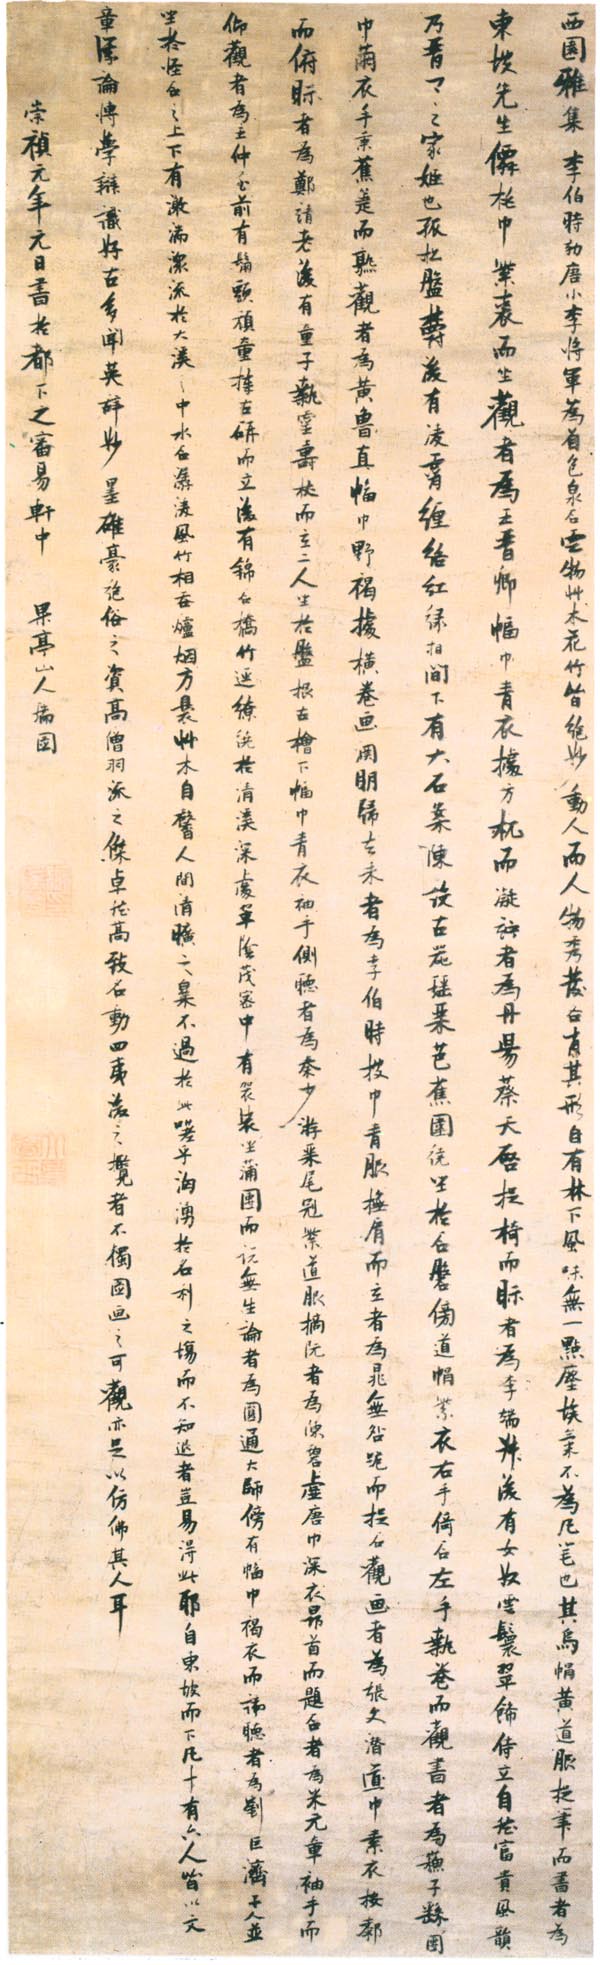 西園雅集 李伯時効唐小李將軍為着色泉石雲物艸木花竹皆絶妙動人而人物秀發各肖其形自有林下風味無一點塵埃氣不為凡筆也其烏帽黃道服捉筆而書者為
東坡先生僊桃巾紫裘而坐觀者為王晉卿幅巾青衣據方杌而凝竚者為丹陽蔡天啓捉椅而眎者為李端叔後有女奴雲鬟翠飾侍立自然富貴風韻
乃晉卿之家姬也孤松盤欝後有凌霄纏絡紅綠相間下有大石案陳設古器瑤琴芭蕉圍繞坐於石磐傍道帽紫衣右手倚石左手執卷而觀書者為蘇子繇團
巾繭衣手秉蕉箑而熟觀者為黃魯直幅巾野褐據橫卷画淵明歸去来者為李伯時披巾青服撫肩而立者為晁無咎跪而捉石觀画者為張文潛道巾素衣按膝
而俯眎者為鄭靖老後有童子執靈壽杖而立二人坐於盤根古檜下幅巾青衣袖手側聽者為秦少游琹尾冠紫道服摘阮者為陳碧虛唐巾深衣昻首而題石者為米元章袖手而
仰觀者為王仲至前有鬅頭頑童捧古硏而立後有錦石橋竹逕繚繞於清溪深處翠陰茂密中有袈裟坐蒲團而説無生論者為圓通大師傍有幅巾褐衣而諦聽者為劉巨濟二人並
坐於怪石之上下有激湍潨流於大溪之中水石潺湲風竹相吞爐烟方裊艸木自馨人間清曠之樂不過於此嗟乎洶湧於名利之塲而不知退者豈易得此耶自東坡而下凡十有六人皆以文
章議論愽學辯識好古多聞英辭妙墨雄豪絶俗之資高僧羽流之傑卓然高致名動四夷後之攬者不獨圖画之可觀亦足以仿佛其人耳
崇禎元年元日書於都下之審易軒中 果亭山人瑞圖